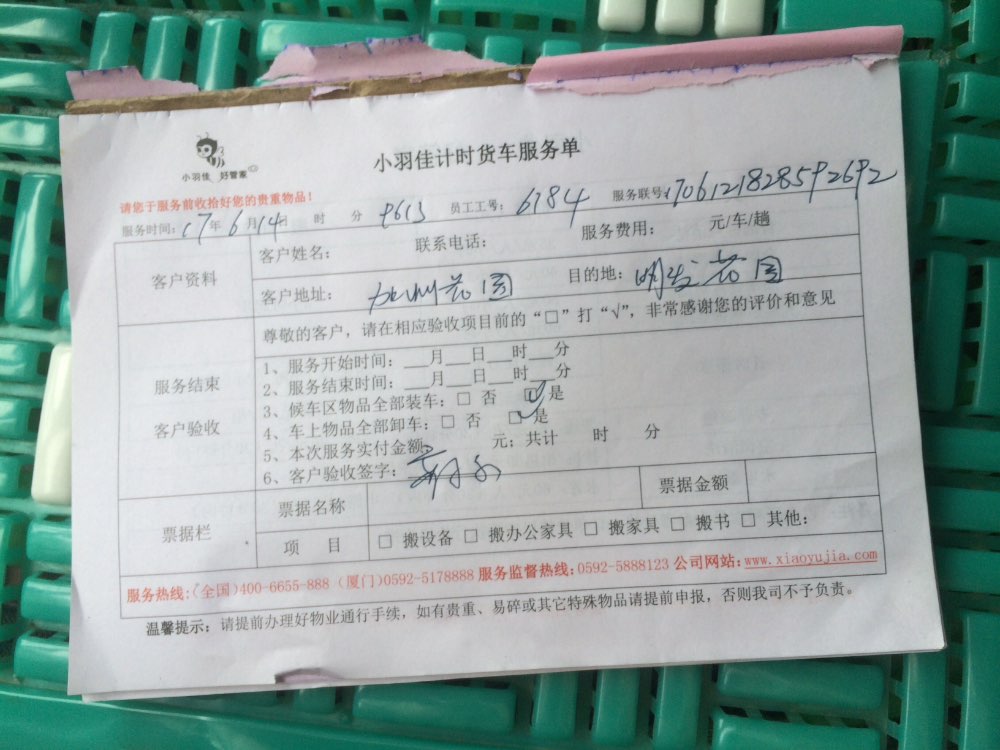 小羽佳 好管家
小羽佳计时货车服务单
请您于服务前收拾好您的贵重物品！
服务时间：17年6月14日 时 分 9613 员工工号：6184 服务联号：1706121828592692
客户资料
客户姓名： 联系电话： 服务费用： 元/车/趟
客户地址： 加州花园 目的地：明发花园
服务结束
客户验收
尊敬的客户，请在相应验收项目前的“□”打“√”，非常感谢您的评价和意见
1、服务开始时间：___月___日___时___分
2、服务结束时间：___月___日___时___分
3、候车区物品全部装车：□ 否 □ 是
4、车上物品全部卸车：□ 否 □ 是
5、本次服务实付金额 元；共计 时 分
6、客户验收签字：
票据栏
票据名称 票据金额
项 目 □ 搬设备 □ 搬办公家具 □ 搬家具 □ 搬书 □ 其他：
服务热线：（全国）400-6655-888（厦门）0592-5178888 服务监督热线：0592-5888123 公司网站：www.xiaoyujia.com
温馨提示：请提前办理好物业通行手续，如有贵重、易碎或其它特殊物品请提前申报，否则我司不予负责。